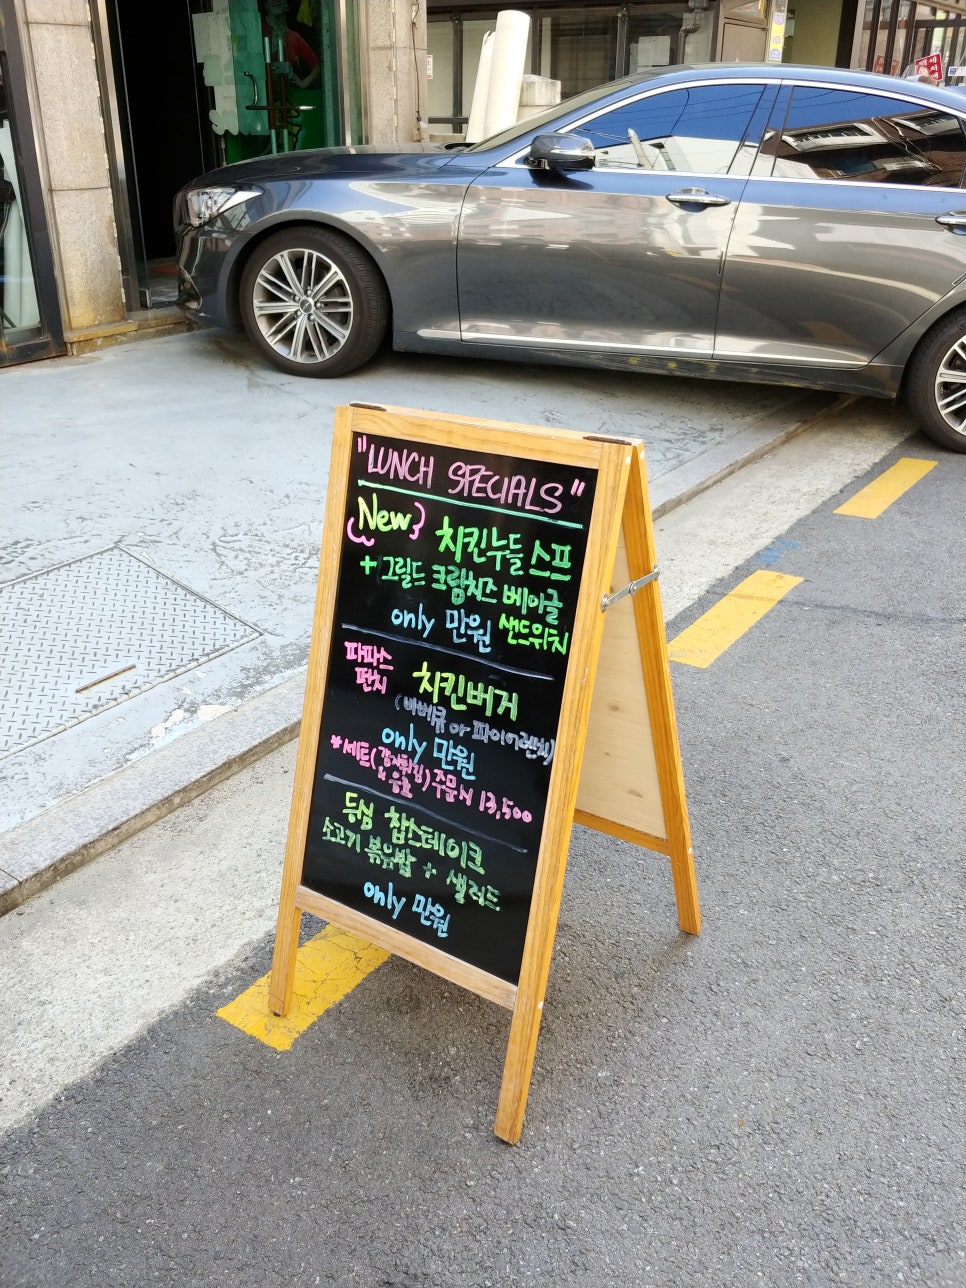 "LUNCH SPECIALS"
New 치킨누들 스프
+ 그릴드 크림치즈 베이글
only 만원 샌드위치
파파스
펀치 치킨버거
(바베큐 or 파이어랜치)
only 만원
*세트(감자튀김) 주문시 13,500
& 음료
등심 찹스테이크
소고기 볶음밥 + 샐러드
only 만원